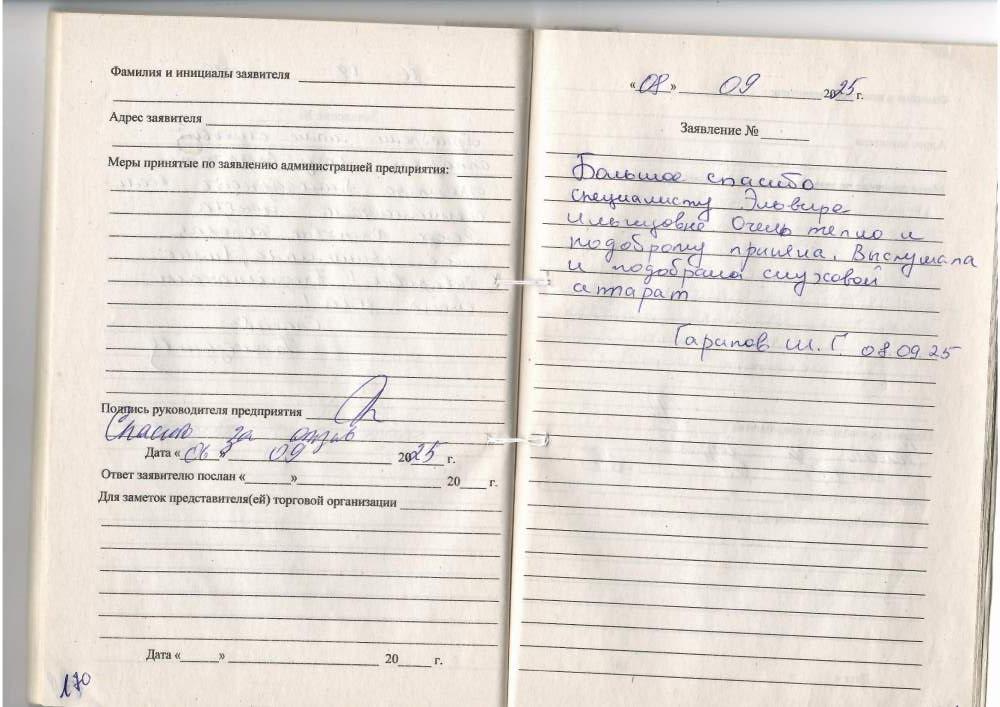 Фамилия и инициалы заявителя
Адрес заявителя
Меры принятые по заявлению администрацией предприятия:
Подпись руководителя предприятия
Спасибо за отзыв
Дата « » 09 2025 г.
Ответ заявителю послан « » 20 г.
Для заметок представителя(ей) торговой организации
Дата « » 20 г.
170
«08» 09 2025 г.
Заявление №
Большое спасибо
специалисту Эльвире
Очень тепло и
подоброму приняла. Выслушала
и подобрала слуховой
аппарат
Гарипов Ш. Г. 08.09.25